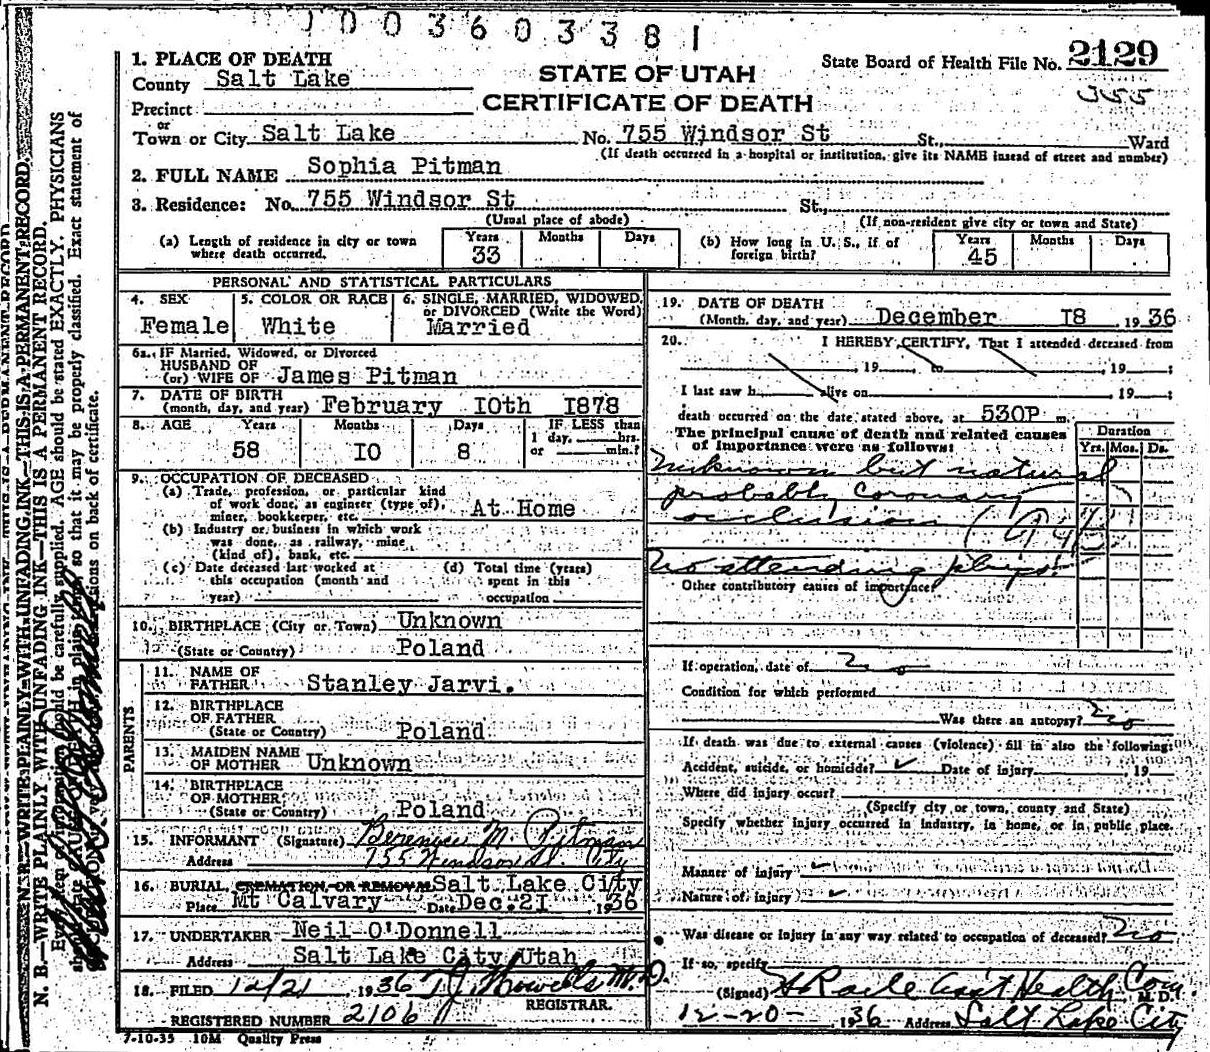 1003603381
State Board of Health File No. 2129
355
STATE OF UTAH
CERTIFICATE OF DEATH
1. PLACE OF DEATH
County Salt Lake
Precinct
or
Town or City Salt Lake No. 755 Windsor St St., Ward
(If death occurred in a hospital or institution, give its NAME instead of street and number)
2. FULL NAME Sophia Pitman
3. Residence: No. 755 Windsor St St.,
(Usual place of abode) (If non-resident give city or town and State)
(a) Length of residence in city or town where death occurred. Years 33 Months Days
(b) How long in U. S., if of foreign birth? Years 45 Months Days
PERSONAL AND STATISTICAL PARTICULARS
4. SEX Female
5. COLOR OR RACE White
6. SINGLE, MARRIED, WIDOWED, or DIVORCED (Write the Word) Married
6a. IF Married, Widowed, or Divorced
HUSBAND OF
(or) WIFE OF James Pitman
7. DATE OF BIRTH
(month, day, and year) February 10th 1878
8. AGE Years 58 Months 10 Days 8 IF LESS than 1 day, hrs. or min.?
9. OCCUPATION OF DECEASED
(a) Trade, profession, or particular kind
of work done, as engineer (type of),
miner, bookkeeper, etc. At Home
(b) Industry or business in which work
was done, as railway, mine
(kind of), bank, etc.
(c) Date deceased last worked at
this occupation (month and
year)
(d) Total time (years)
spent in this
occupation
10. BIRTHPLACE (City or Town) Unknown
(State or Country) Poland
PARENTS
11. NAME OF FATHER Stanley Jarvi.
12. BIRTHPLACE OF FATHER
(State or Country) Poland
13. MAIDEN NAME OF MOTHER Unknown
14. BIRTHPLACE OF MOTHER
(State or Country) Poland
15. INFORMANT (Signature) Berenyce M. Pitman
Address 755 Windsor St. City
16. BURIAL, CREMATION, OR REMOVAL Salt Lake City
Place Mt Calvary Date Dec. 21 1936
17. UNDERTAKER Neil O'Donnell
Address Salt Lake City Utah
18. FILED 12/21 1936 T J Howells M.D.
REGISTRAR.
REGISTERED NUMBER 2106
7-10-35 10M Quality Press
19. DATE OF DEATH
(Month, day, and year) December 18 1936
20. I HEREBY CERTIFY, That I attended deceased from
, 19 , to , 19 ;
I last saw h alive on 19 ;
death occurred on the date stated above, at 530P m.
The principal cause of death and related causes
of importance were as follows:
Duration
Yrs. Mos. Ds.
Unknown but natural
probably coronary
occlusion
No attending phys.
Other contributory causes of importance:
If operation, date of No
Condition for which performed
Was there an autopsy? No
If death was due to external causes (violence) fill in also the following:
Accident, suicide, or homicide? Date of injury , 19
Where did injury occur?
(Specify city or town, county and State)
Specify whether injury occurred in industry, in home, or in public place.
Manner of injury
Nature of injury
Was disease or injury in any way related to occupation of deceased? No
If so, specify
(Signed) H Raile Ass't Health Com. M. D.
12-20- 1936 Address Salt Lake City
N. B.—WRITE PLAINLY WITH UNFADING INK—THIS IS A PERMANENT RECORD.